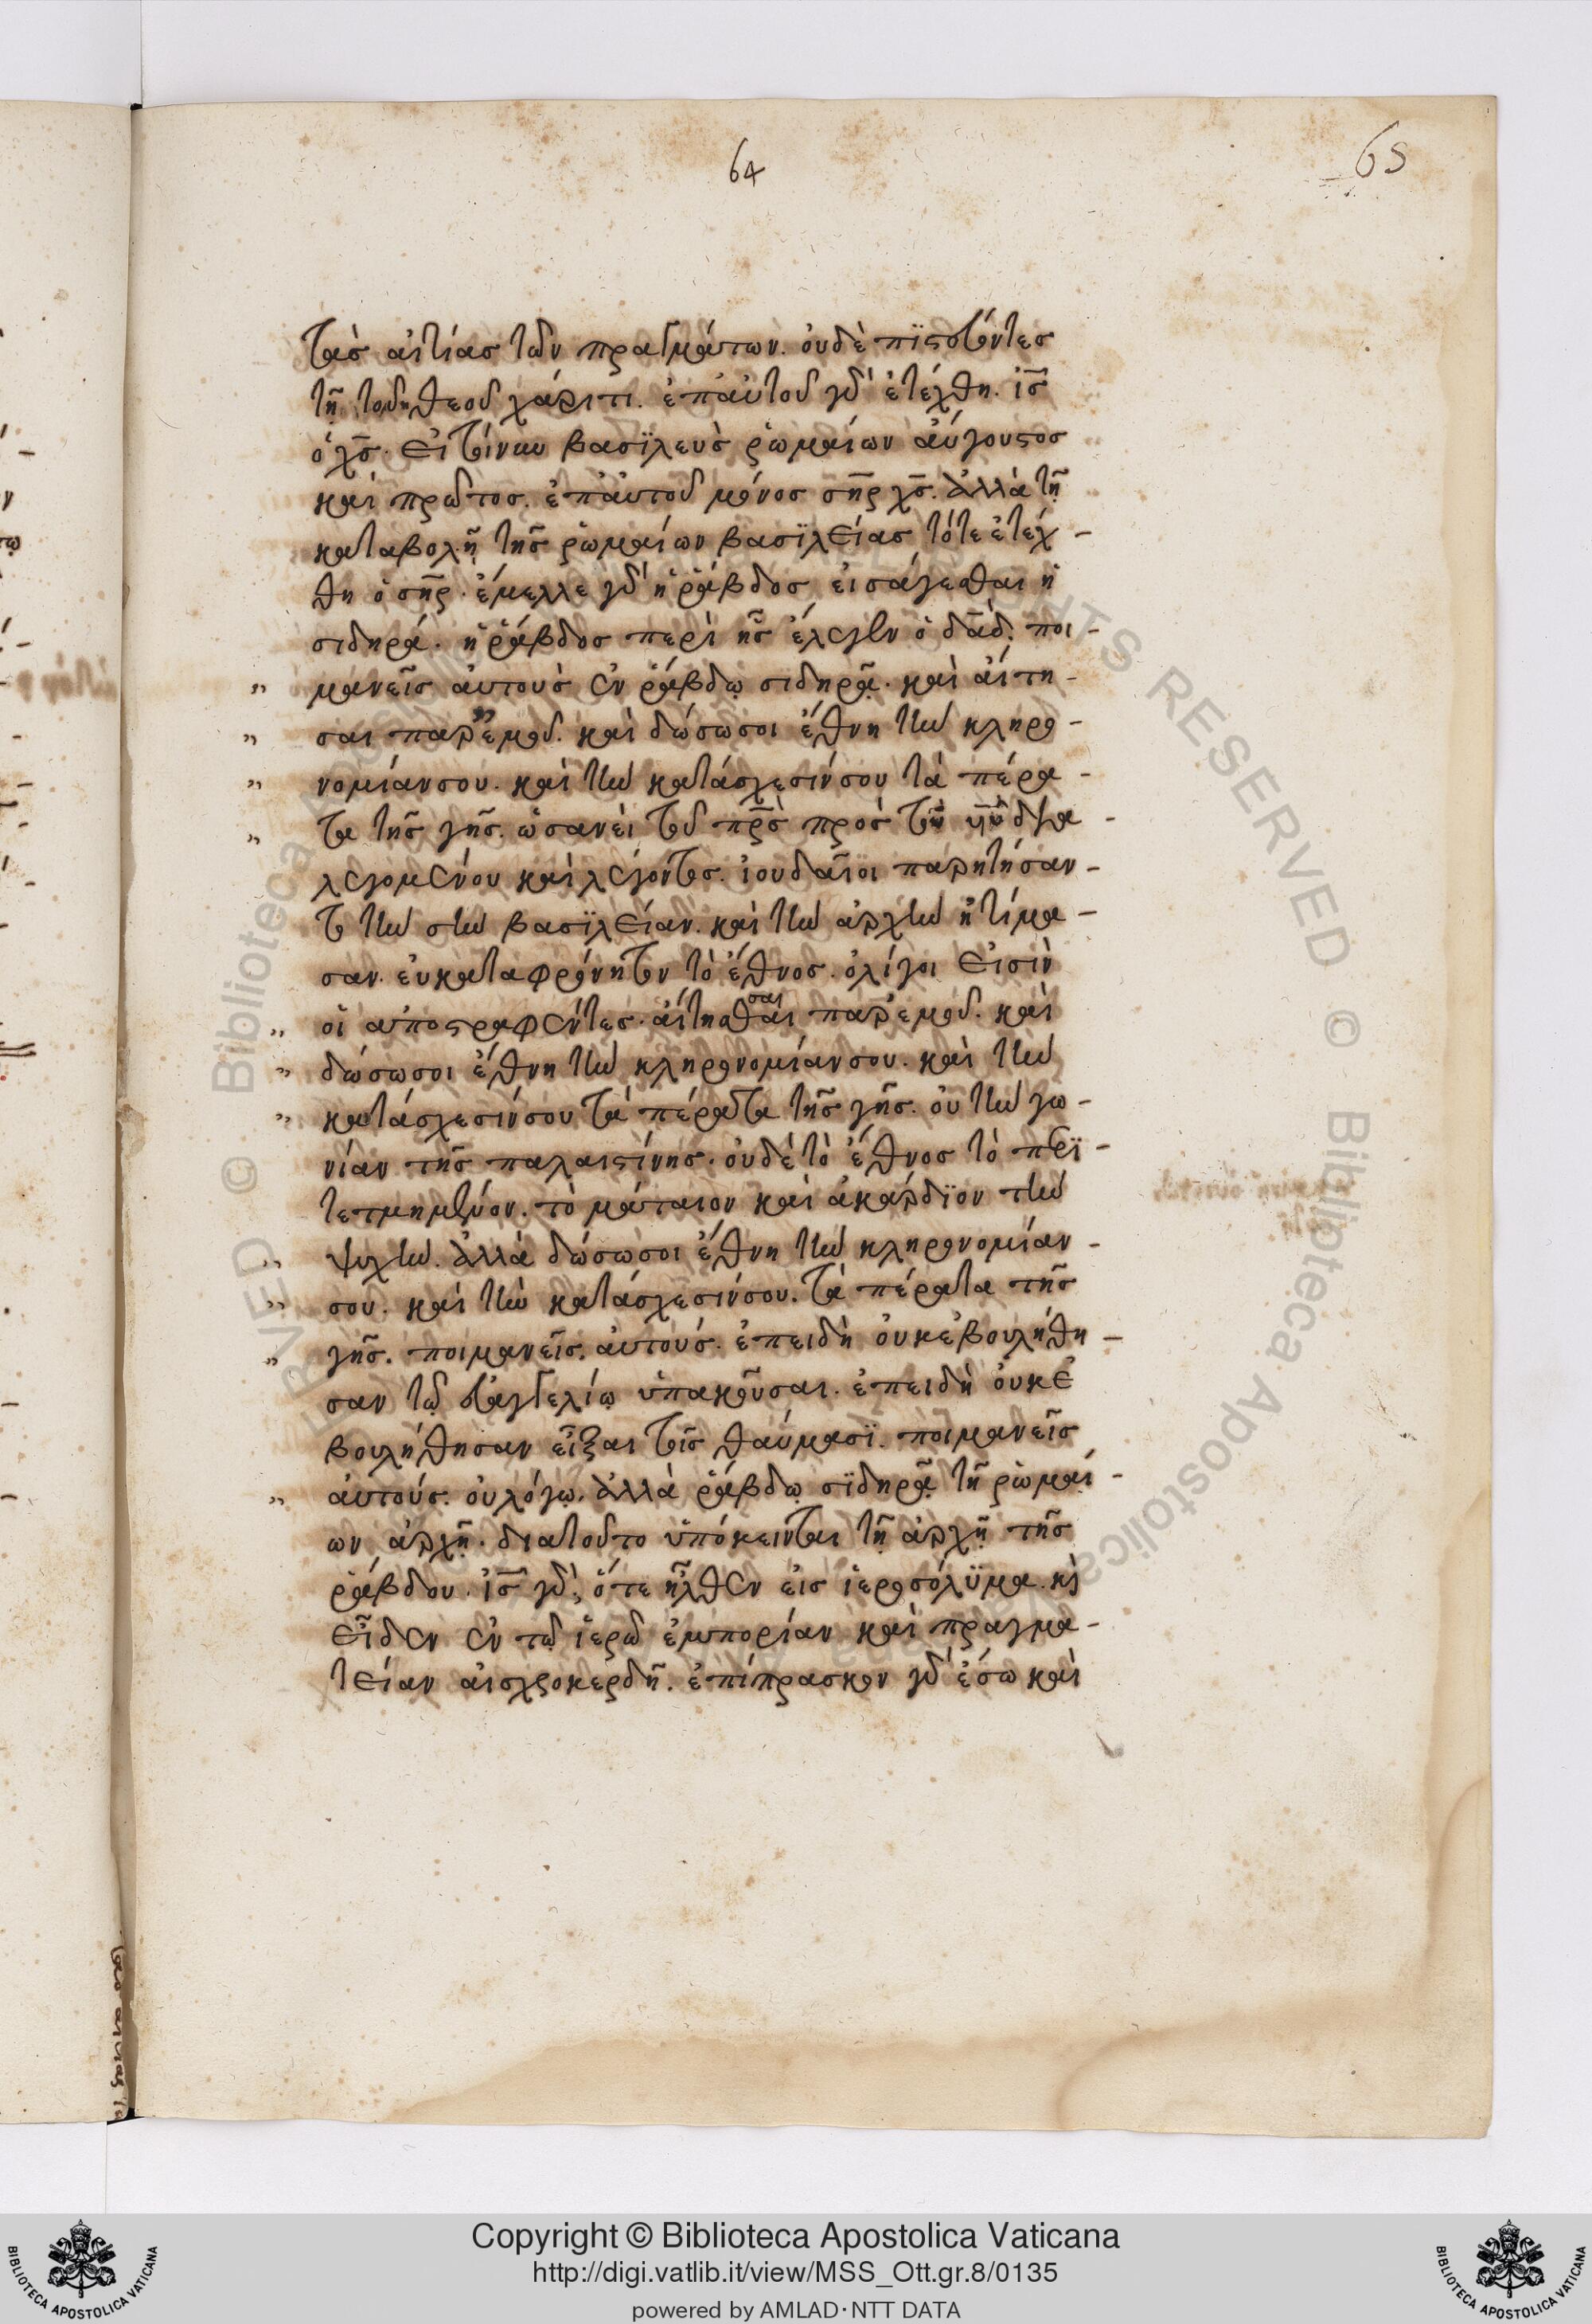 64
65
τὰσ αἰτίασ τῶν πραγμάτων. οὐδὲ πϊστεύοντεσ
τῆ τοῦ θεοῦ χάριτι. ἐπ' αὐτοῦ γὰρ ἐτέχθη. ἰσ̅
ὁ χσ̅. ἐγένετο βασϊλεὺσ ῥωμαίων ἀύγουστοσ
καὶ πρῶτοσ. ἐπ' ἀυτοῦ μόνοσ σηρ̅ χσ̅. ἀλλὰ τῆ
καταβολῆ τῆσ ῥωμαίων βασϊλείασ τότε ἐτέχ-
θη ὁ σηρ̅. ἔμελλε γὰρ ἡ ῥάβδοσ εἰσάγεσθαι ἡ
σιδηρά. ἡ ῥάβδοσ περὶ ἧσ ἔλεγεν ὁ δαδ̅. ποι-
" μανεῖσ ἀυτοὺσ ἐν ῥάβδω σιδηρᾶ. καὶ ἄιτη-
" σαι παρ' ἐμοῦ. καὶ δώσωσοι ἔθνη τὴν κληρο-
" νομίαν σου. καὶ τὴν κατάσχεσίν σου τὰ πέρα-
" τα τῆσ γῆσ. ὡσανεὶ τοῦ πρσ̅ πρὸσ τὸν
λεγομένου καὶ λέγοντοσ. ἰουδαῖοι παρητήσαν-
το τὴν σὴν βασϊλείαν. καὶ τὴν ἀρχὴν ἠτίμα-
σαν. ἐυκαταφρόνητον τὸ ἔθνοσ. ὀλίγοι εἰσὶν
" οἱ ἀποστραφέντεσ. ἄιτησαι παρ' ἐμοῦ. καὶ
" δώσωσοι ἔθνη τὴν κληρονομίαν σου. καὶ τὴν
" κατάσχεσίν σου τὰ πέρατα τῆσ γῆσ. οὐ τὴν γω-
νίαν τῆσ παλαιστίνησ. ὀυδὲ τὸ ἔθνοσ τὸ περϊ-
τετμημένον. τὸ μάταιον καὶ ἀκάρδϊον τὴν
" ψυχήν. ἀλλὰ δώσωσοι ἔθνη τὴν κληρονομίαν-
" σου. καὶ τὴν κατάσχεσίν σου. τὰ πέρατα τῆσ
" γῆσ. ποιμανεῖσ ἀυτούσ. ἐπειδὴ ὀυκ ἐβουλήθη-
σαν τῶ ἐυαγγελίω ὑπακοῦσαι. ἐπειδὴ ὀυκ ἐ
βουλήθησαν εἶξαι τοῖσ θαύμασϊ. ποιμανεῖσ
" ἀυτούσ. οὐ λόγω. ἀλλὰ ῥάβδω σϊδηρᾶ τῆ ῥωμαί-
ων ἀρχῆ. διατοῦτο ὑπόκεινται τῆ ἀρχῆ τῆσ
ῥάβδου. ἰσ̅ γὰρ ὅτε ἦλθεν εἰσ ἱεροσόλϋμα. κὶ
εἶδεν ἐν τῶ ἱερῶ ἐμπορίαν καὶ πραγμα-
τείαν ἀισχροκερδῆ. ἐπίπρασκον γὰρ ἔσω καὶ
Copyright © Biblioteca Apostolica Vaticana
http://digi.vatlib.it/view/MSS_Ott.gr.8/0135
powered by AMLAD·NTT DATA
BIBLIOTECA APOSTOLICA VATICANA
BIBLIOTECA APOSTOLICA VATICANA